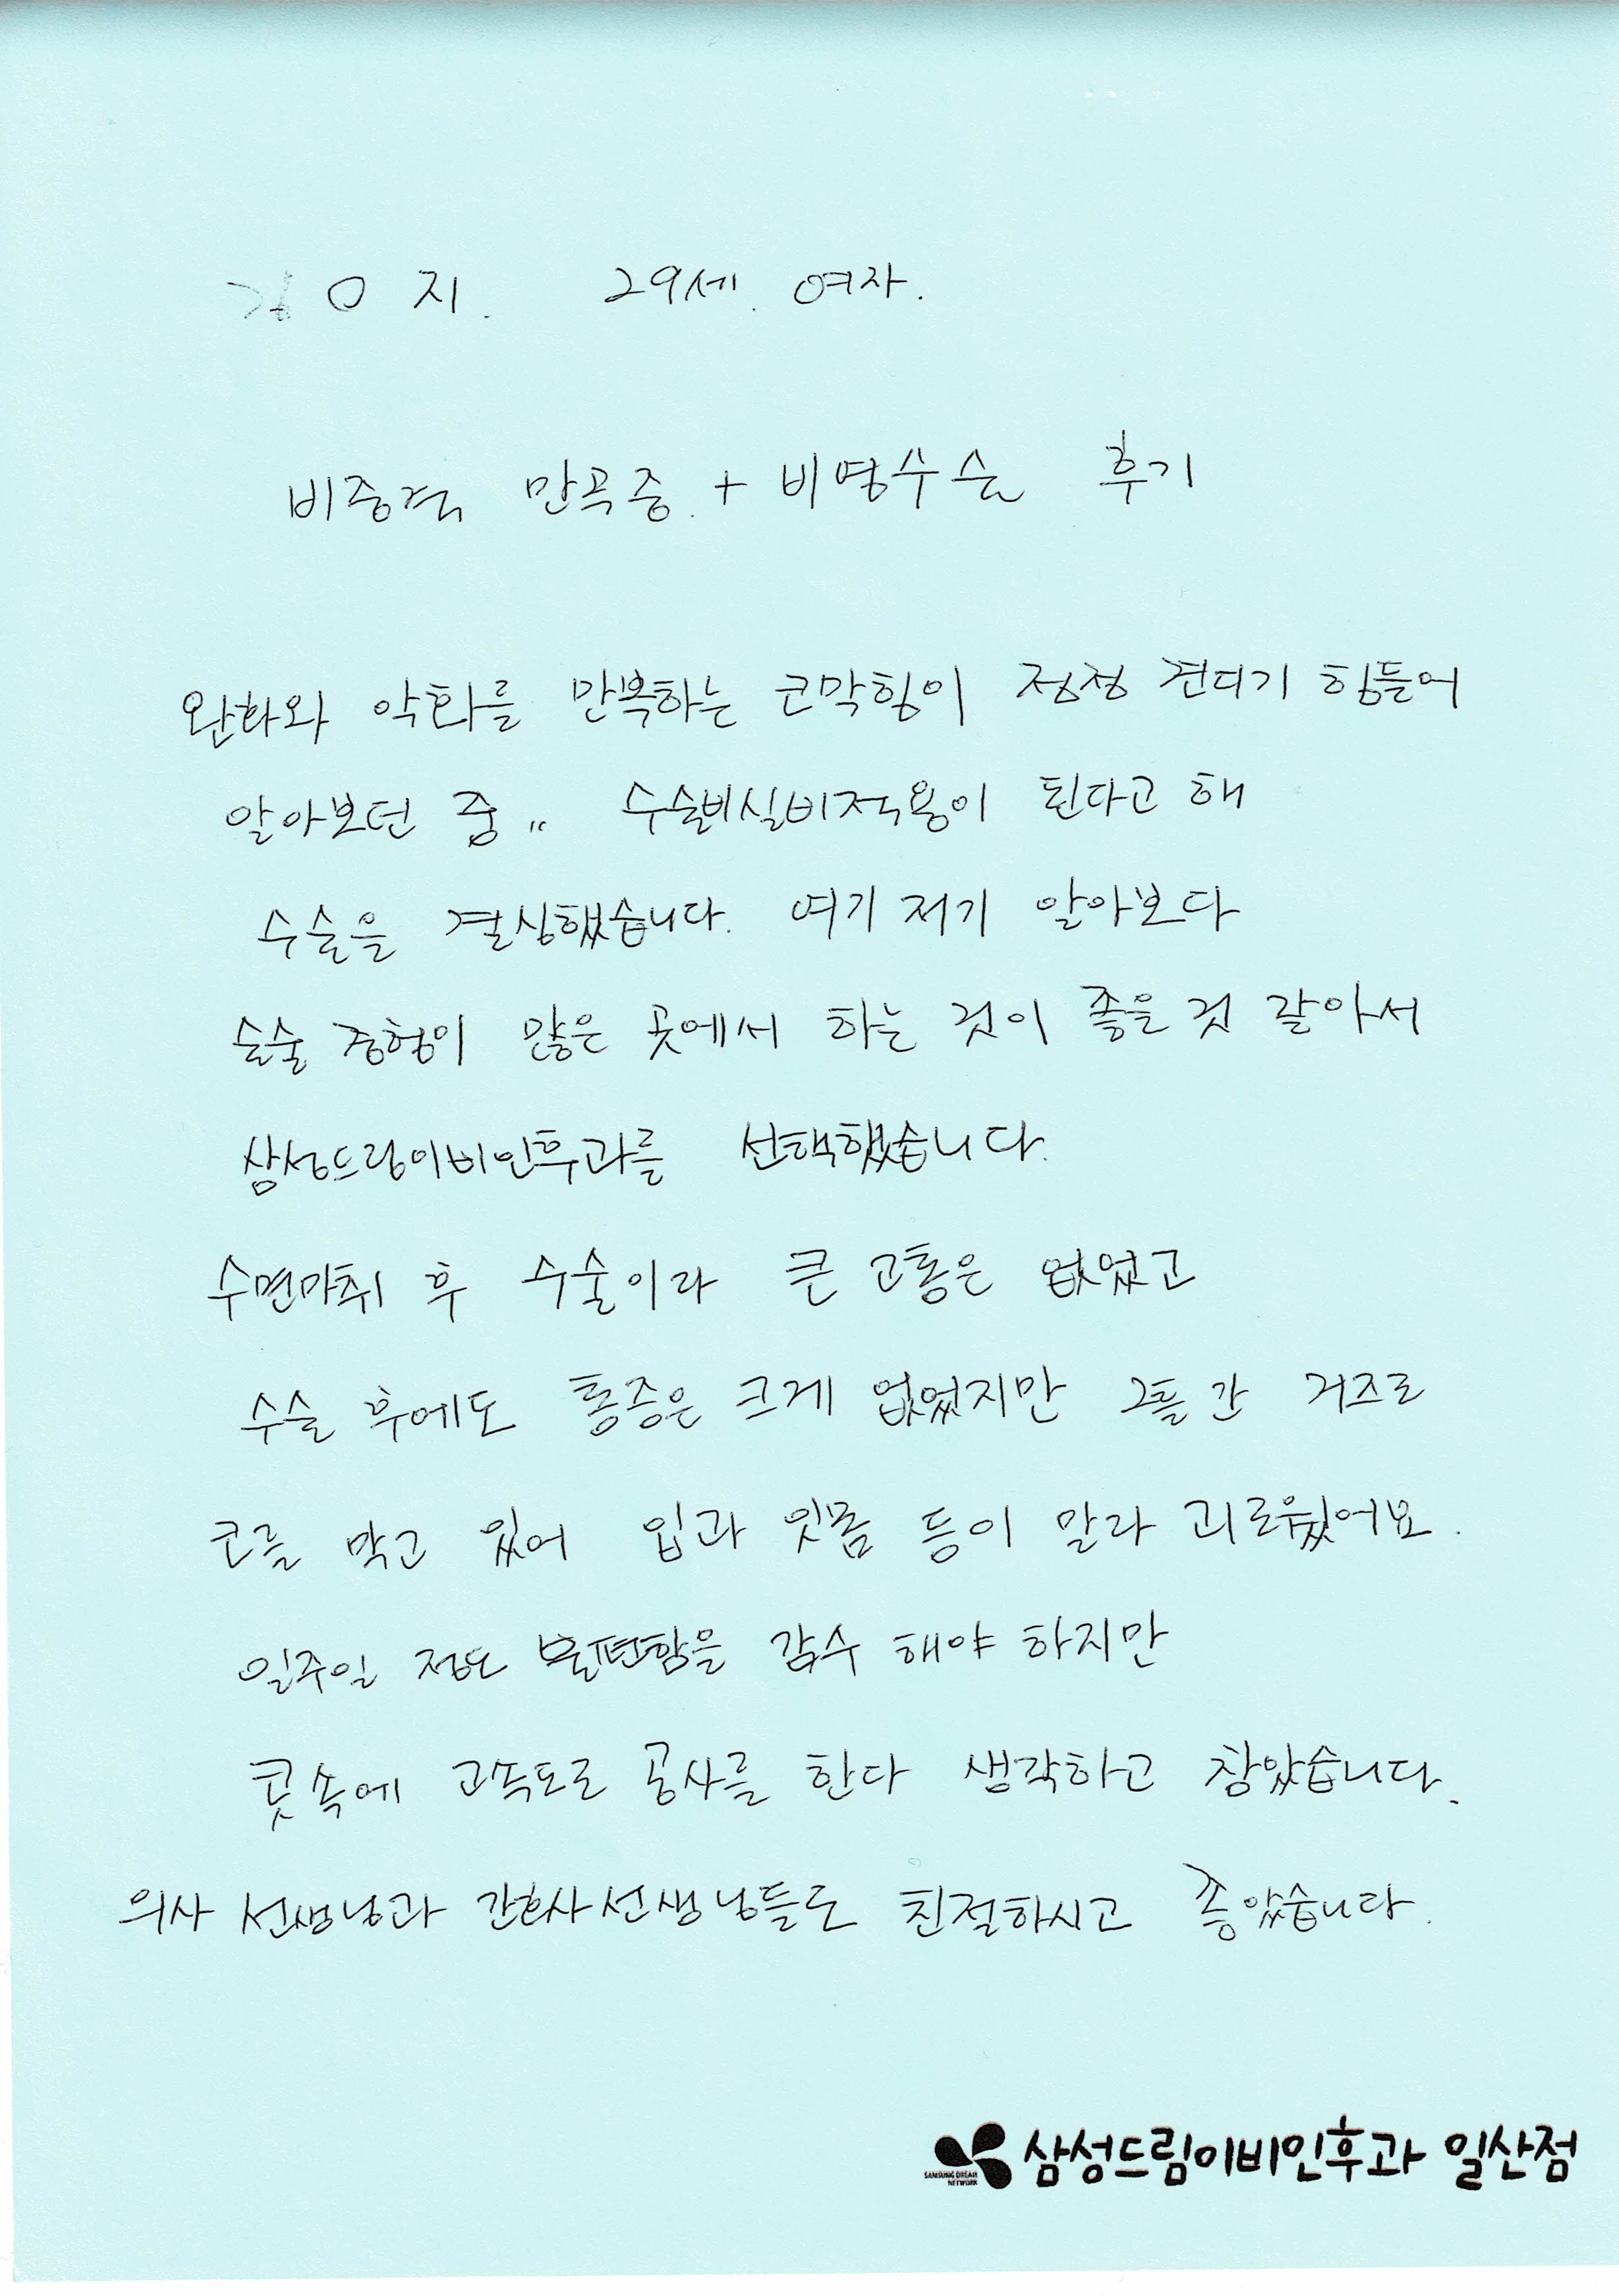 김 O 지. 29세. 여자.
비중격 만곡증. + 비염수술 후기
완화와 악화를 반복하는 코막힘이 점점 견디기 힘들어
알아보던 중.. 수술비실비적용이 된다고 해
수술을 결심했습니다. 여기 저기 알아보다
수술 경험이 많은 곳에서 하는 것이 좋을 것 같아서
삼성드림이비인후과를 선택했습니다.
수면마취 후 수술이라 큰 고통은 없었고
수술 후에도 통증은 크게 없었지만 2틀 간 거즈로
코를 막고 있어 입과 잇몸 등이 말라 괴로웠어요.
일주일 정도 불편함을 감수 해야 하지만
콧속에 고속도로 공사를 한다 생각하고 참았습니다.
의사 선생님과 간호사선생님들도 친절하시고 좋았습니다.
SAMSUNG DREAM
NETWORK
삼성드림이비인후과 일산점